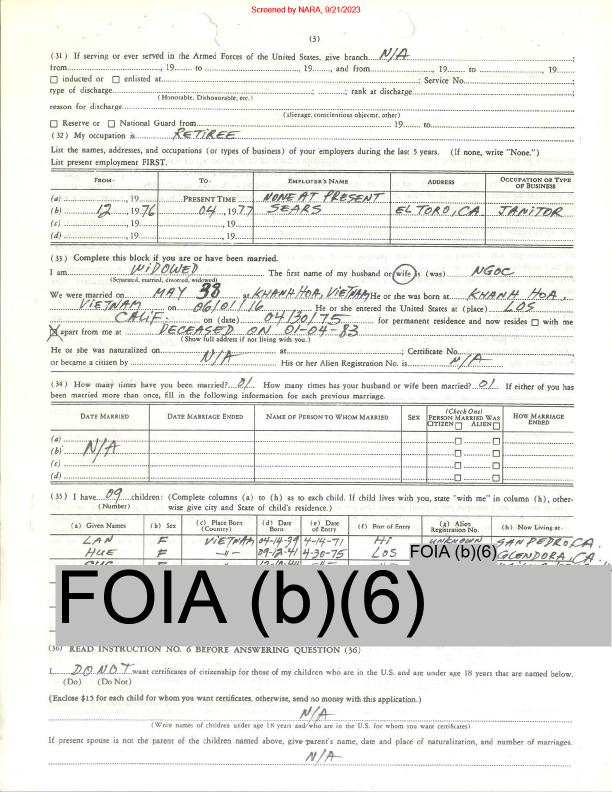 Screened by NARA, 9/21/2023
(3)
(31) If serving or ever served in the Armed Forces of the United States, give branch N/A ;
from , 19 to , 19 , and from , 19 to , 19 ;
☐ inducted or ☐ enlisted at ; Service No. ;
type of discharge ; ; rank at discharge ;
(Honorable, Dishonorable, etc.)
reason for discharge
(alienage, conscientious objector, other)
☐ Reserve or ☐ National Guard from 19 to
(32) My occupation is RETIREE
List the names, addresses, and occupations (or types of business) of your employers during the last 5 years. (If none, write "None.")
List present employment FIRST.
FROM- TO- EMPLOYER'S NAME ADDRESS OCCUPATION OR TYPE OF BUSINESS
(a) , 19 PRESENT TIME NONE AT PRESENT
(b) 12 , 1976 04 , 1977 SEARS EL TORO, CA. JANITOR
(c) , 19 , 19
(d) , 19 , 19
(33) Complete this block if you are or have been married.
I am WIDOWED The first name of my husband or wife is (was) NGOC
(Separated, married, divorced, widowed)
We were married on MAY 38 at KHANH HOA, VIETNAM He or she was born at KHANH HOA,
VIETNAM on 06/01/16 He or she entered the United States at (place) LOS
CALIF. on (date) 04/30/75 for permanent residence and now resides ☐ with me
☒ apart from me at DECEASED ON 01-04-83
(Show full address if not living with you.)
He or she was naturalized on N/A at ; Certificate No.
or became a citizen by His or her Alien Registration No. is N/A
(34) How many times have you been married? 01 How many times has your husband or wife been married? 01 If either of you has
been married more than once, fill in the following information for each previous marriage.
DATE MARRIED DATE MARRIAGE ENDED NAME OF PERSON TO WHOM MARRIED SEX (Check One) PERSON MARRIED WAS CITIZEN ☐ ALIEN ☐ HOW MARRIAGE ENDED
(a) ☐ ☐
(b) N/A ☐ ☐
(c) ☐ ☐
(d) ☐ ☐
(35) I have 09 children: (Complete columns (a) to (h) as to each child. If child lives with you, state "with me" in column (h), other-
(Number) wise give city and State of child's residence.)
(a) Given Names (b) Sex (c) Place Born (Country) (d) Date Born (e) Date of Entry (f) Port of Entry (g) Alien Registration No. (h) Now Living at-
LAN F VIETNAM 04-14-39 4-14-71 HI UNKNOWN SAN PEDRO, CA.
HUE F -"- 09-12-41 4-30-75 LOS FOIA (b)(6) GLENDORA, CA.
FOIA (b)(6)
(36) READ INSTRUCTION NO. 6 BEFORE ANSWERING QUESTION (36)
I DO NOT want certificates of citizenship for those of my children who are in the U.S. and are under age 18 years that are named below.
(Do) (Do Not)
(Enclose $15 for each child for whom you want certificates, otherwise, send no money with this application.)
N/A
(Write names of children under age 18 years and who are in the U.S. for whom you want certificates)
If present spouse is not the parent of the children named above, give parent's name, date and place of naturalization, and number of marriages.
N/A